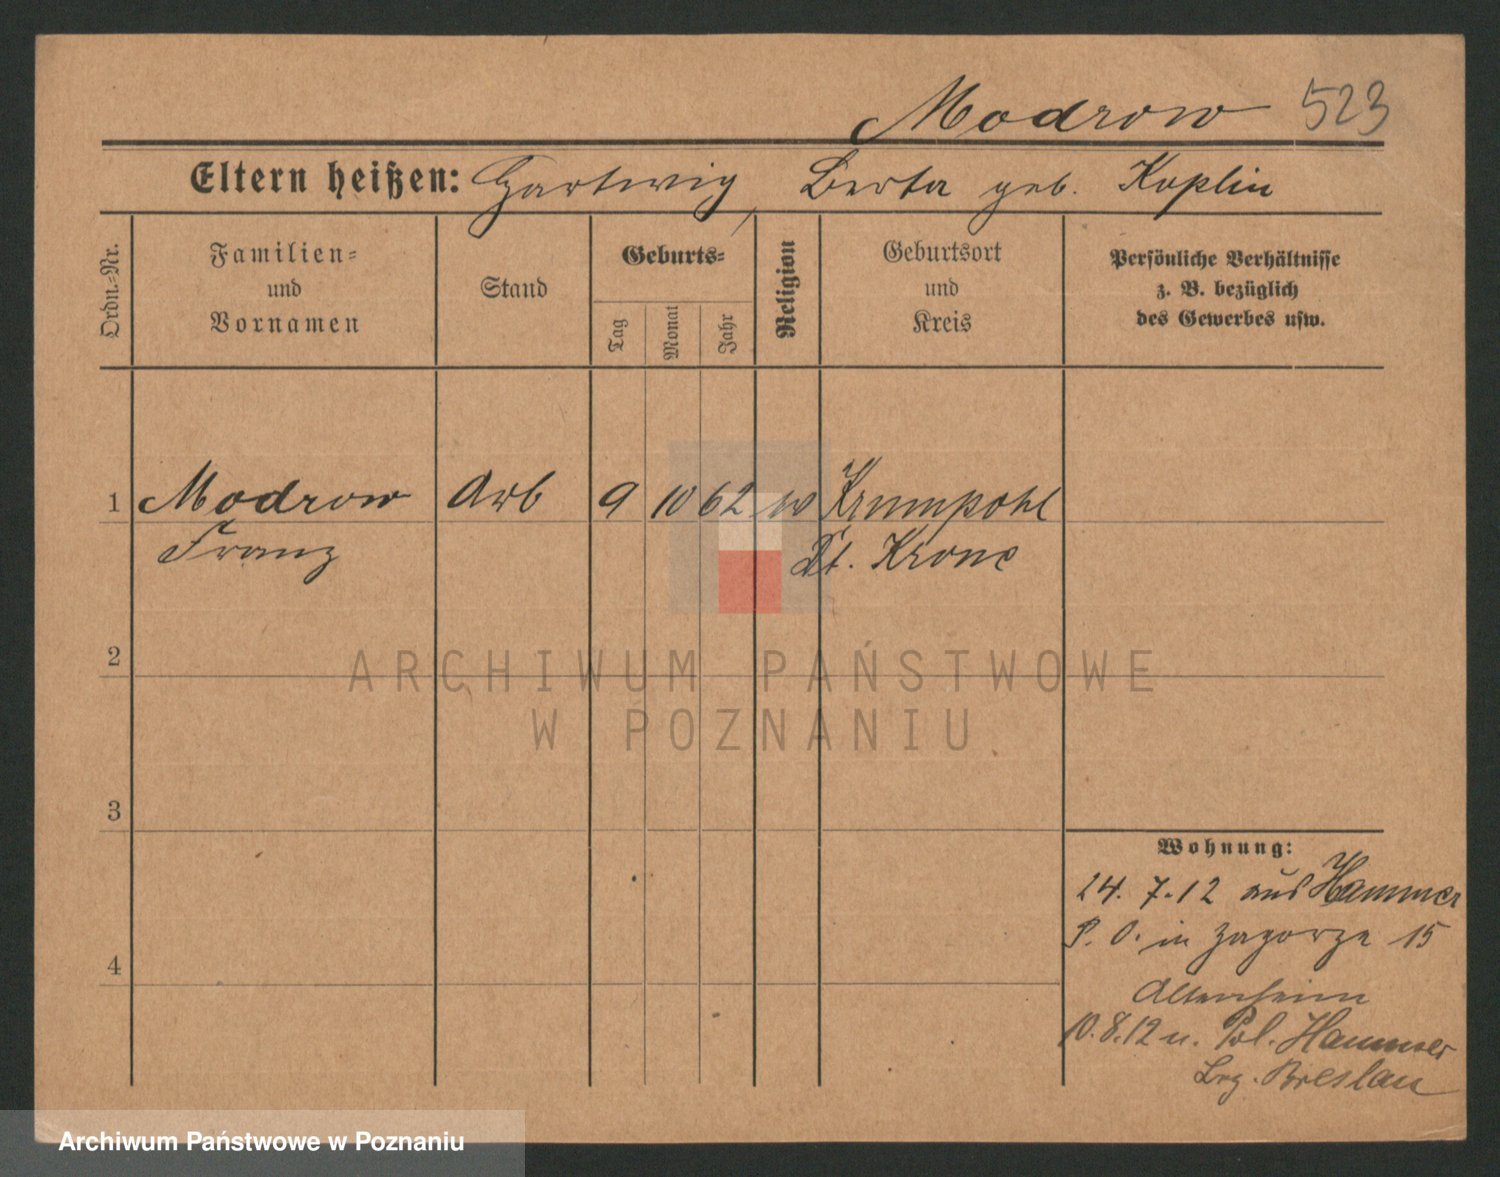 Modrow 523
Eltern heißen: Hartwig, Berta geb. Koplin
Ordn.-Nr.
Familien-
und
Vornamen
Stand
Geburts-
Tag
Monat
Jahr
Religion
Geburtsort
und
Kreis
Persönliche Verhältnisse
z. B. bezüglich
des Gewerbes usw.
1 Modrow Arb 9 10 62 w Krumpohl
Franz Dt. Krone
2
ARCHIWUM PAŃSTWOWE
W POZNANIU
3
Wohnung:
24. 7.12 aus Hammer
P. O. in Zagorze 15
4
Altenheim
10.8.12 n. Pol. Hammer
Bez. Breslau
Archiwum Państwowe w Poznaniu